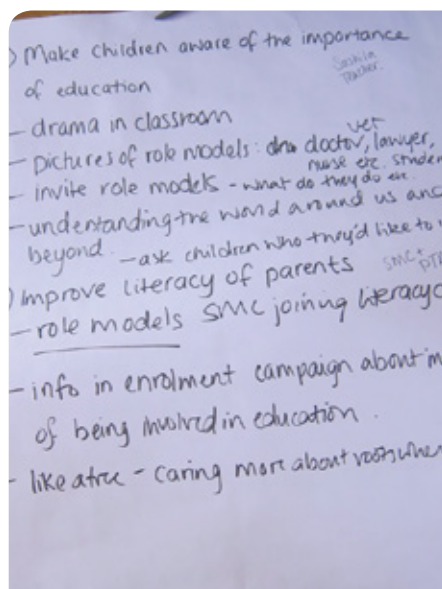 ) Make children aware of the importance
of education
Teacher
- drama in classroom
vet
- pictures of role models: doctor, lawyer,
nurse etc. student
- invite role models - what do they do etc.
- understanding the world around us and
beyond - ask children who they'd like to
) Improve literacy of parents
SMC +
- role models SMC joining literacy
- info in enrolment campaign about
of being involved in education.
- like a tree - caring more about roots when